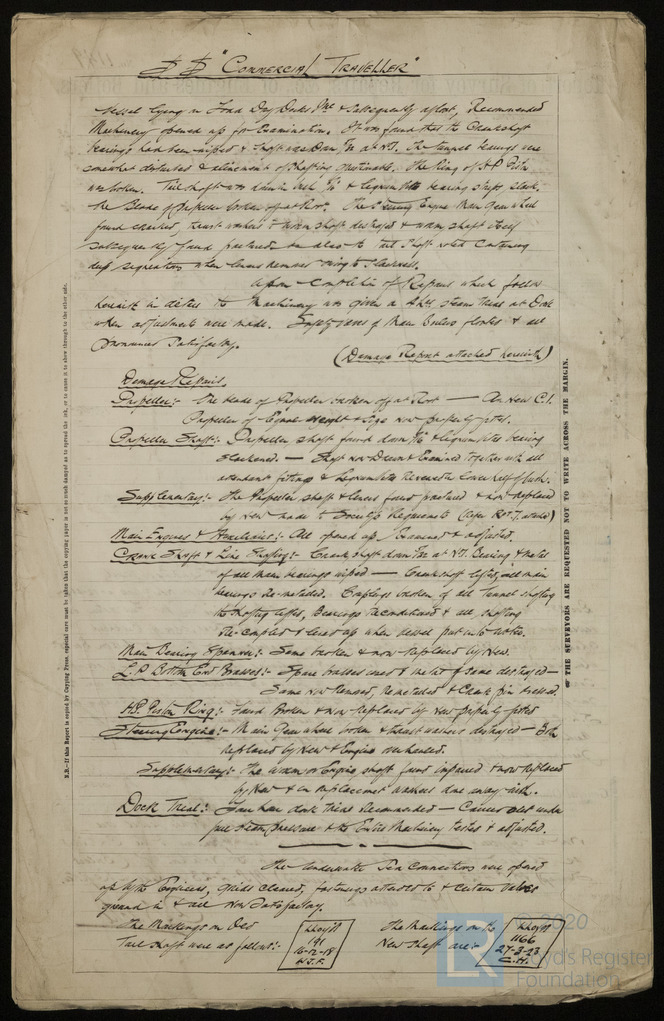 SS "COMMERCIAL TRAVELLER"
Vessel lying in Dry Dock & subsequently afloat, Recommended
Machinery opened up for Examination. It was found that the Crankshaft
bearings had been wiped & shaft was down at The tunnel bearings were
somewhat disturbed & alinement of shafting questionable. The Ring of H.P. Piston
was broken. Tail shaft was down & lignum vitae bearing slack.
One Blade of propeller broken off at Root. The Steering Engine Main Gear wheel
found cracked, thrust washers & worm shaft destroyed & worm shaft
subsequently found fractured also the tail shaft
deep when liners removed owing to slackness.
Upon Completion of Repairs which follow
herewith in detail the Machinery was given a 4 hrs steam trial at Dock
when adjustments were made. Safety valves of Main Boilers floated & all
pronounced Satisfactory.
(Damage Report attached herewith)
Damage Repairs.
Propeller:- One blade of Propeller broken off at Root — A New C.I.
Propeller of Equal weight & Size now properly fitted.
Propeller Shaft:- Propeller shaft found down & lignum vitae bearing
slackened. — Shaft now Drawn & Examined together with all
attendant fittings & Lignum Vitae renewed lower half of bush.
Supplementary:- The Propeller shaft & liners found fractured & now Replaced
by New made to Society's Requirements
Main Engines & Auxiliaries:- All opened up, Examined & adjusted.
Crank Shaft & Line Shafting:- Crank shaft down at Bearing & metal
of all main bearings wiped — Crank shaft lifted, all main
bearings re-metalled. Couplings broken of all tunnel shafting
the shafting lifted, Bearings reconditioned & all shafting
Re-coupled & lined up when vessel put into water.
Main Bearing Spanner:- Same broken & now Replaced by New.
L.P. Bottom End Brasses:- Spare brasses used & metal of same destroyed —
Same now Removed, Remetalled & Crank pin dressed.
H.P. Piston Ring:- Found Broken & now Replaced by New properly fitted
Steering Engine:- Main Gear wheel broken & thrust washers destroyed — Both
Replaced by New & Engine overhauled.
Supplementary:- The worm or Engine shaft found impaired & now Replaced
by New & in replacement washers done away with.
Dock Trial:- Four hour dock trial Recommended — Carried out under
full steam pressure & the Entire Machinery tested & adjusted.
The Underwater Sea Connections were opened
up by the Engineers, grids cleared, fastenings attended to & Certain Valves
ground in & all now Satisfactory.
The Markings on Old
Tail shaft were as follows:-
Lloyd's
191
16-12-18
W.J.F.
The Markings on the
New Shaft are:-
Lloyd's
1166
27-3-23
C.H.
N.B.—If this Report is copied by Copying Press, especial care must be taken that the copying paper is not so much damped as to spread the ink, or to cause it to show through to the other side.
THE SURVEYORS ARE REQUESTED NOT TO WRITE ACROSS THE MARGIN.
LR
© 2020
Lloyd's Register
Foundation